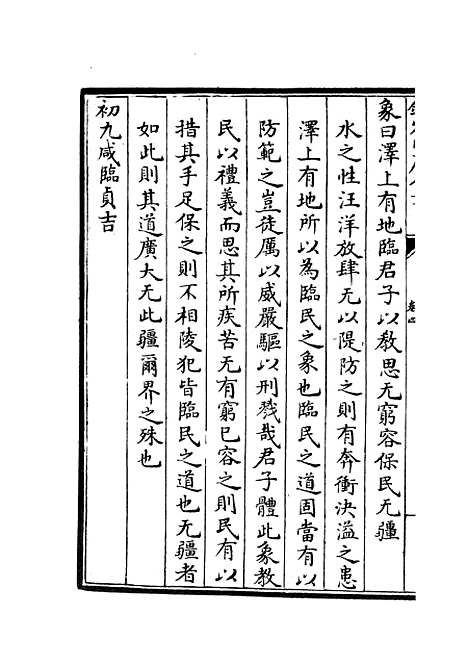 象曰澤上有地臨君子以教思无窮容保民无疆
水之性汪洋放肆无以隄防之則有奔衝決溢之患
澤上有地所以為臨民之象也臨民之道固當有以
防範之豈徒厲以威嚴驅以刑戮哉君子體此象教
民以禮義而思其所疾苦无有窮已容之則民有以
措其手足保之則不相陵犯皆臨民之道也无疆者
如此則其道廣大无此疆爾界之殊也
初九咸臨貞吉